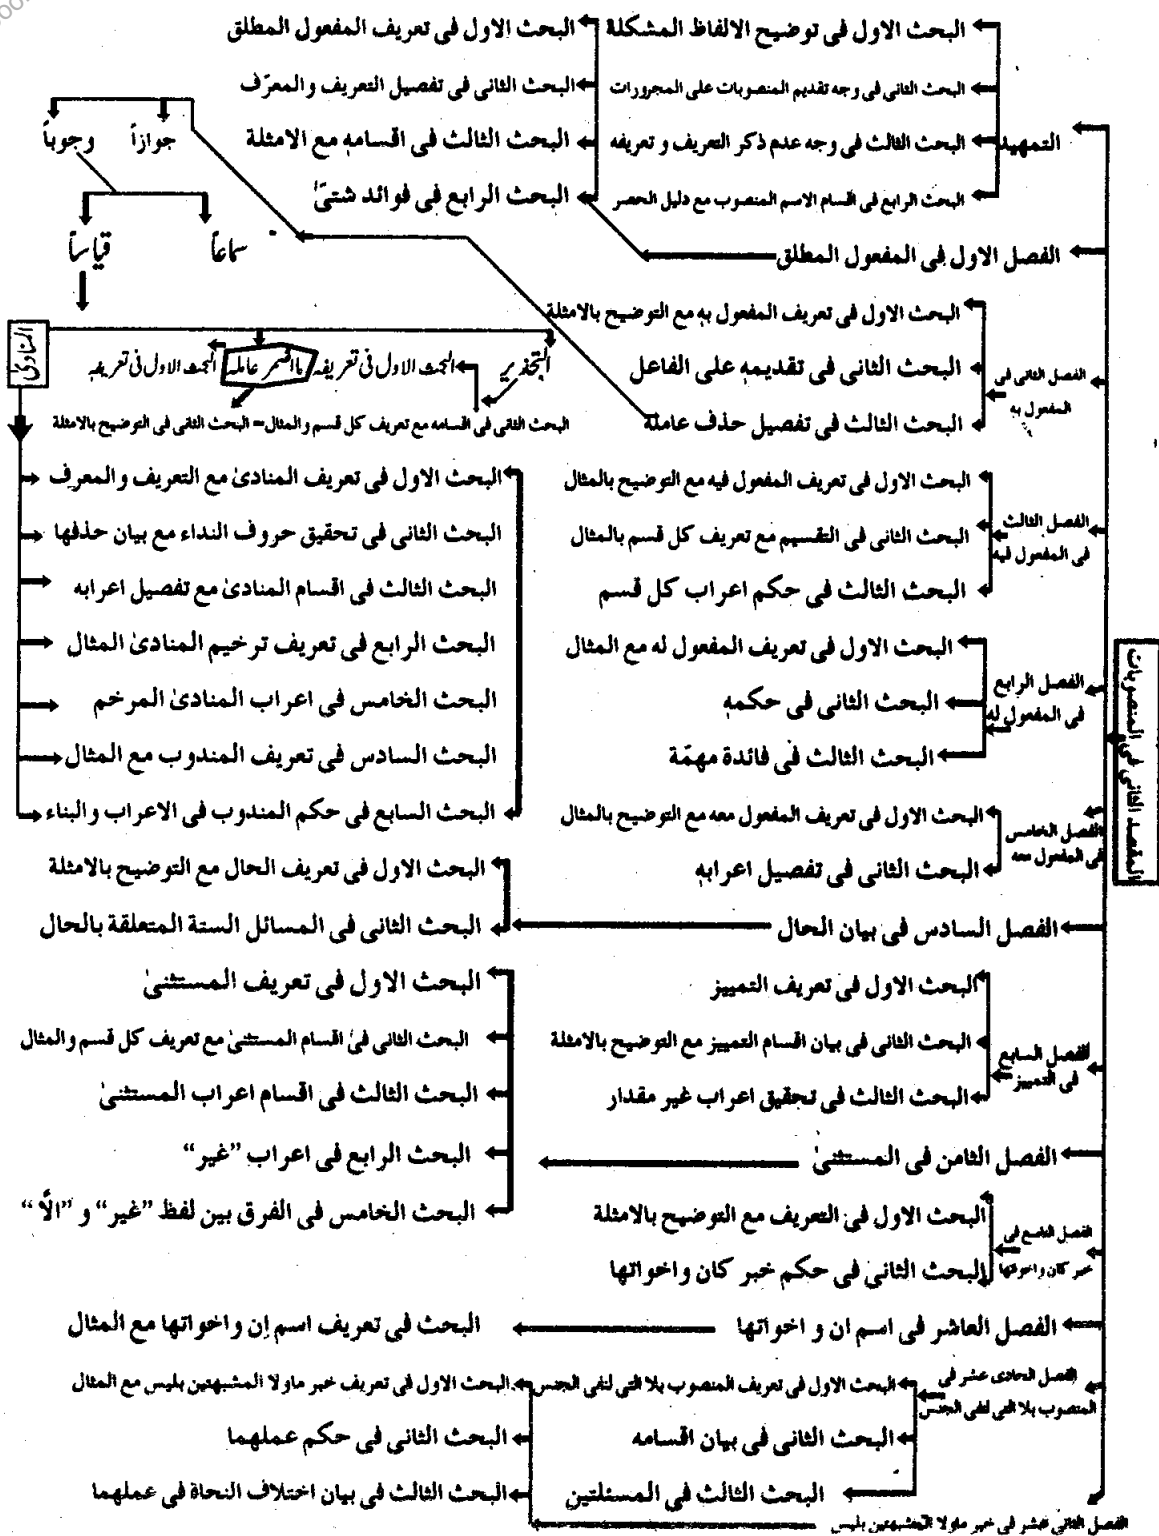 المقصد الثانى فى المنصوبات
التمهيد
البحث الاول فى توضيح الالفاظ المشكلة
البحث الثانى فى وجه تقديم المنصوبات على المجرورات
البحث الثالث فى وجه عدم ذكر التعريف و تعريفه
البحث الرابع فى اقسام الاسم المنصوب مع دليل الحصر
الفصل الاول فى المفعول المطلق
البحث الاول فى تعريف المفعول المطلق
البحث الثانى فى تفصيل التعريف والمعرّف
البحث الثالث فى اقسامه مع الامثلة
البحث الرابع فى فوائد شتىّٰ
الفصل الثانى فى
المفعول به
البحث الاول فى تعريف المفعول به مع التوضيح بالامثلة
البحث الثانى فى تقديمه على الفاعل
البحث الثالث فى تفصيل حذف عاملة
جوازاً
وجوباً
سماعاً
قياساً
التحذير
البحث الاول فى تعريفه
ما اضمر عامله
البحث الاول فى تعريفه
المنادىٰ
البحث الثانى فى اقسامه مع تعريف كل قسم والمثال= البحث الثانى فى التوضيح بالامثلة
البحث الاول فى تعريف المنادىٰ مع التعريف والمعرف
البحث الثانى فى تحقيق حروف النداء مع بيان حذفها
البحث الثالث فى اقسام المنادىٰ مع تفصيل اعرابه
البحث الرابع فى تعريف ترخيم المنادىٰ المثال
البحث الخامس فى اعراب المنادىٰ المرخم
البحث السادس فى تعريف المندوب مع المثال
البحث السابع فى حكم المندوب فى الاعراب والبناء
الفصل الثالث
فى المفعول فيه
البحث الاول فى تعريف المفعول فيه مع التوضيح بالمثال
البحث الثانى فى التقسيم مع تعريف كل قسم بالمثال
البحث الثالث فى حكم اعراب كل قسم
الفصل الرابع
فى المفعول له
البحث الاول فى تعريف المفعول له مع المثال
البحث الثانى فى حكمه
البحث الثالث فى فائدة مهمّة
الفصل الخامس
فى المفعول معه
البحث الاول فى تعريف المفعول معه مع التوضيح بالمثال
البحث الثانى فى تفصيل اعرابه
الفصل السادس فى بيان الحال
البحث الاول فى تعريف الحال مع التوضيح بالامثلة
البحث الثانى فى المسائل الستة المتعلقة بالحال
الفصل السابع
فى التمييز
البحث الاول فى تعريف التمييز
البحث الثانى فى بيان اقسام التمييز مع التوضيح بالامثلة
البحث الثالث فى تحقيق اعراب غير مقدار
الفصل الثامن فى المستثنىٰ
البحث الاول فى تعريف المستثنىٰ
البحث الثانى فى اقسام المستثنىٰ مع تعريف كل قسم والمثال
البحث الثالث فى اقسام اعراب المستثنىٰ
البحث الرابع فى اعراب ”غير“
البحث الخامس فى الفرق بين لفظ ”غير“ و ”الّا“
الفصل التاسع فى
خبر كان واخواتها
البحث الاول فى التعريف مع التوضيح بالامثلة
البحث الثانى فى حكم خبر كان واخواتها
الفصل العاشر فى اسم ان و اخواتها
البحث فى تعريف اسم إن واخواتها مع المثال
الفصل الحادى عشر فى
المنصوب بلا التى لنفى الجنس
البحث الاول فى تعريف المنصوب بلا التى لنفى الجنس
البحث الثانى فى بيان اقسامه
البحث الثالث فى المسئلتين
الفصل الثانى عشر فى خبر ماولا المشبهتين بليس
البحث الاول فى تعريف خبر ماولا المشبهتين بليس مع المثال
البحث الثانى فى حكم عملهما
البحث الثالث فى بيان اختلاف النحاة فى عملهما